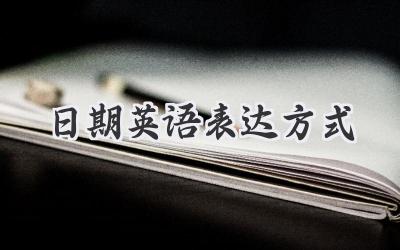 日期英语表达方式